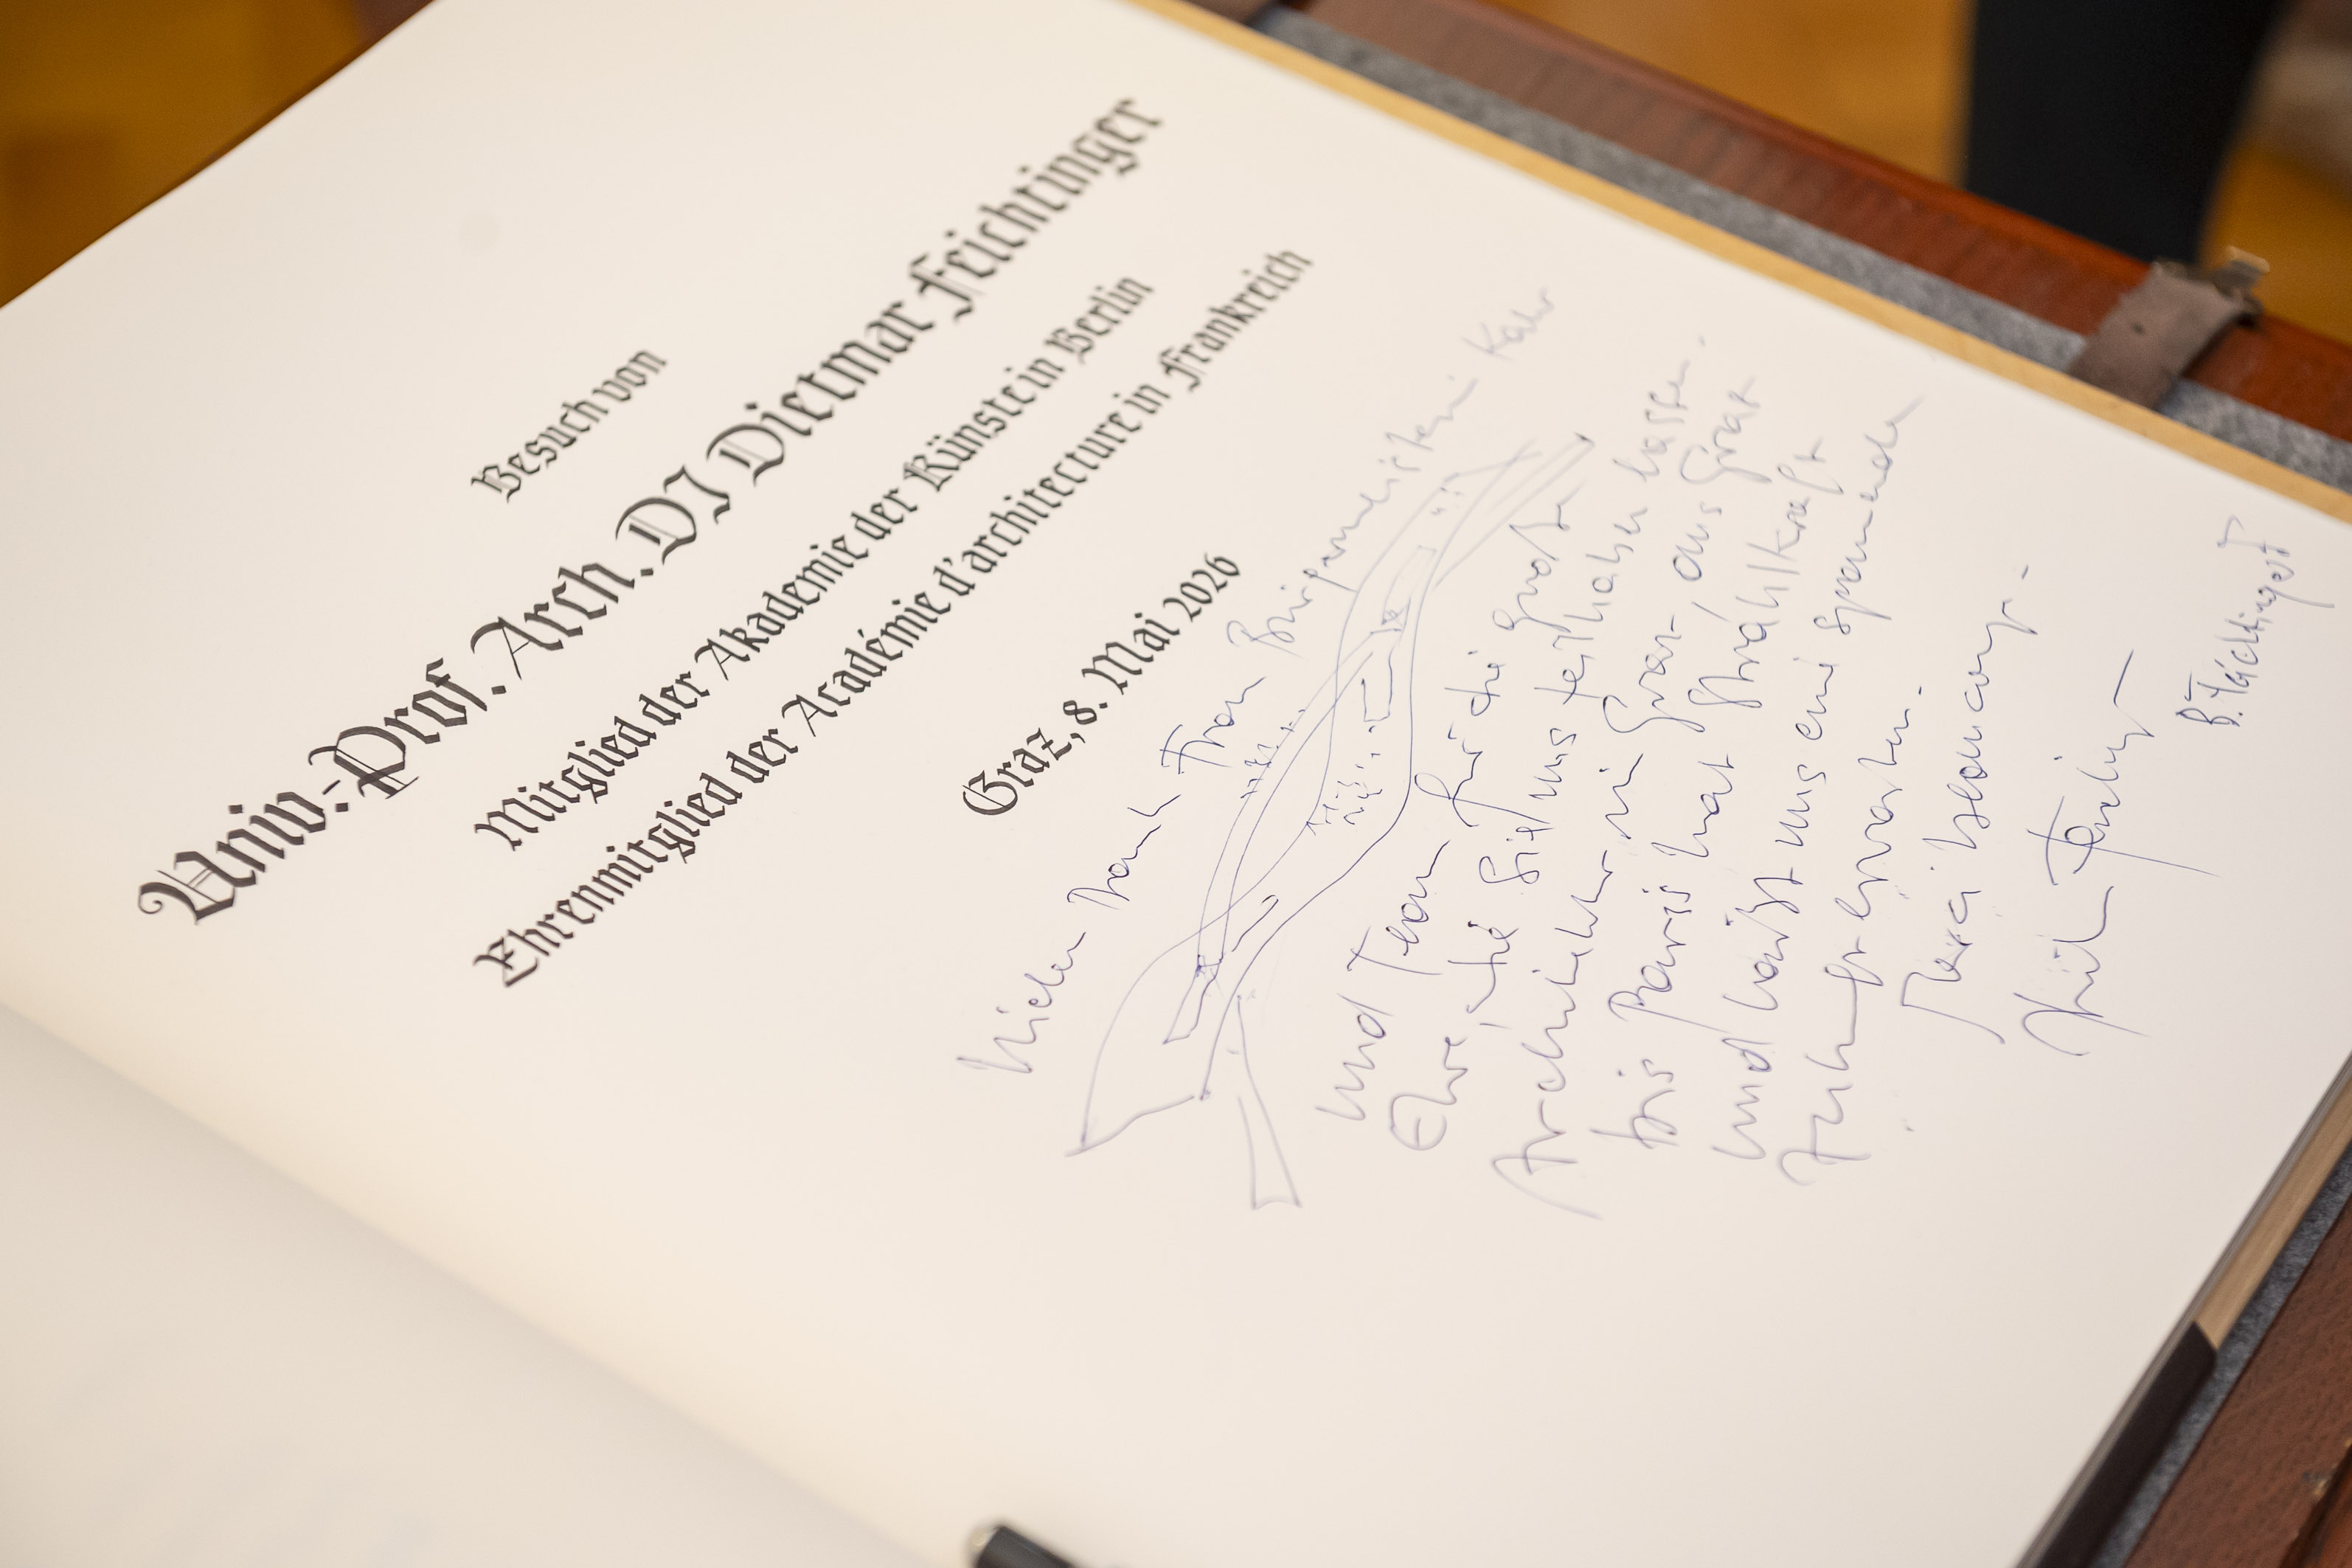 Besuch von
Univ.-Prof. Arch. DI Dietmar Feichtinger
Mitglied der Akademie der Künste in Berlin
Ehrenmitglied der Académie d'architecture in Frankreich
Graz, 8. Mai 2026
Vielen Dank Frau Bürgermeisterin Kahr
und Team für die große
Ehre, die Sie uns teilhaben lassen.
Architektur in Graz, aus Graz
bis Paris hat Strahlkraft
und lässt uns eine spannende
Zukunft erwarten.